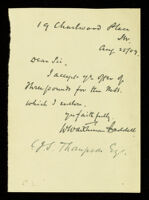 19 Charlwood Place
Aug 25/09
Dear Sir,
I accept yr offer of
three pounds for the MSS.
which I enclose.
yrs faithfully,
W
C.J.S. Thompson Esq.